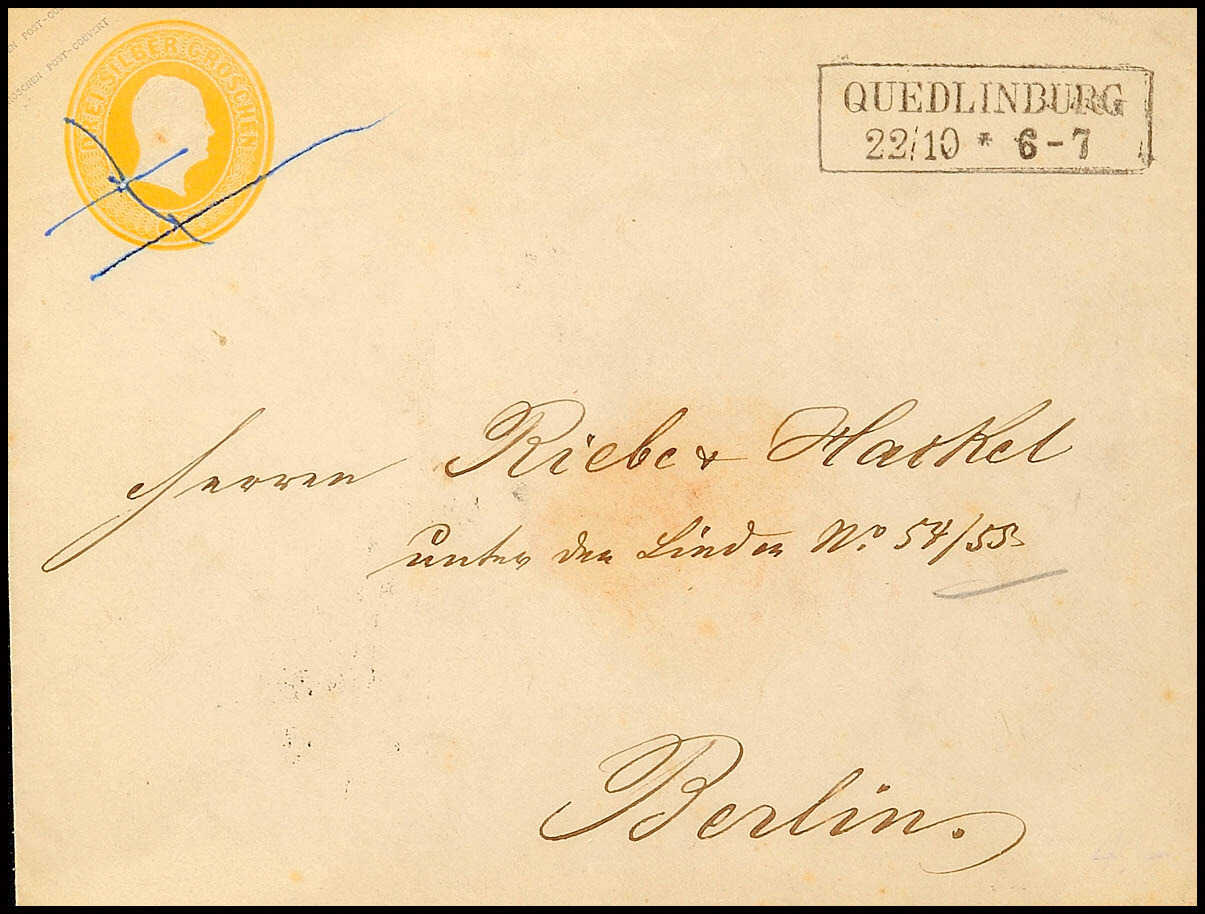 EN POST-COUV
ROSCHEN POST-COUVERT
DREI SILBER GROSCHEN
QUEDLINBURG
22/10 * 6-7
Herren Riebe & Hackel
unter den Linden No. 54/55
Berlin.